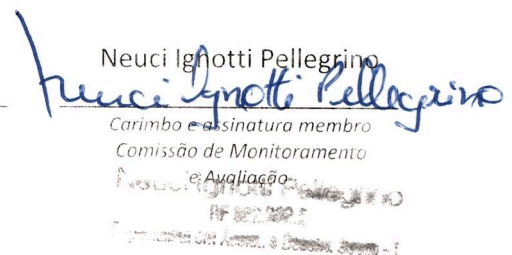 Neuci Ignotti Pellegrino
Neuci Ignotti Pellegrino
Carimbo e assinatura membro
Comissão de Monitoramento
e Avaliação
Neuci Ignotti Pellegrino
RF